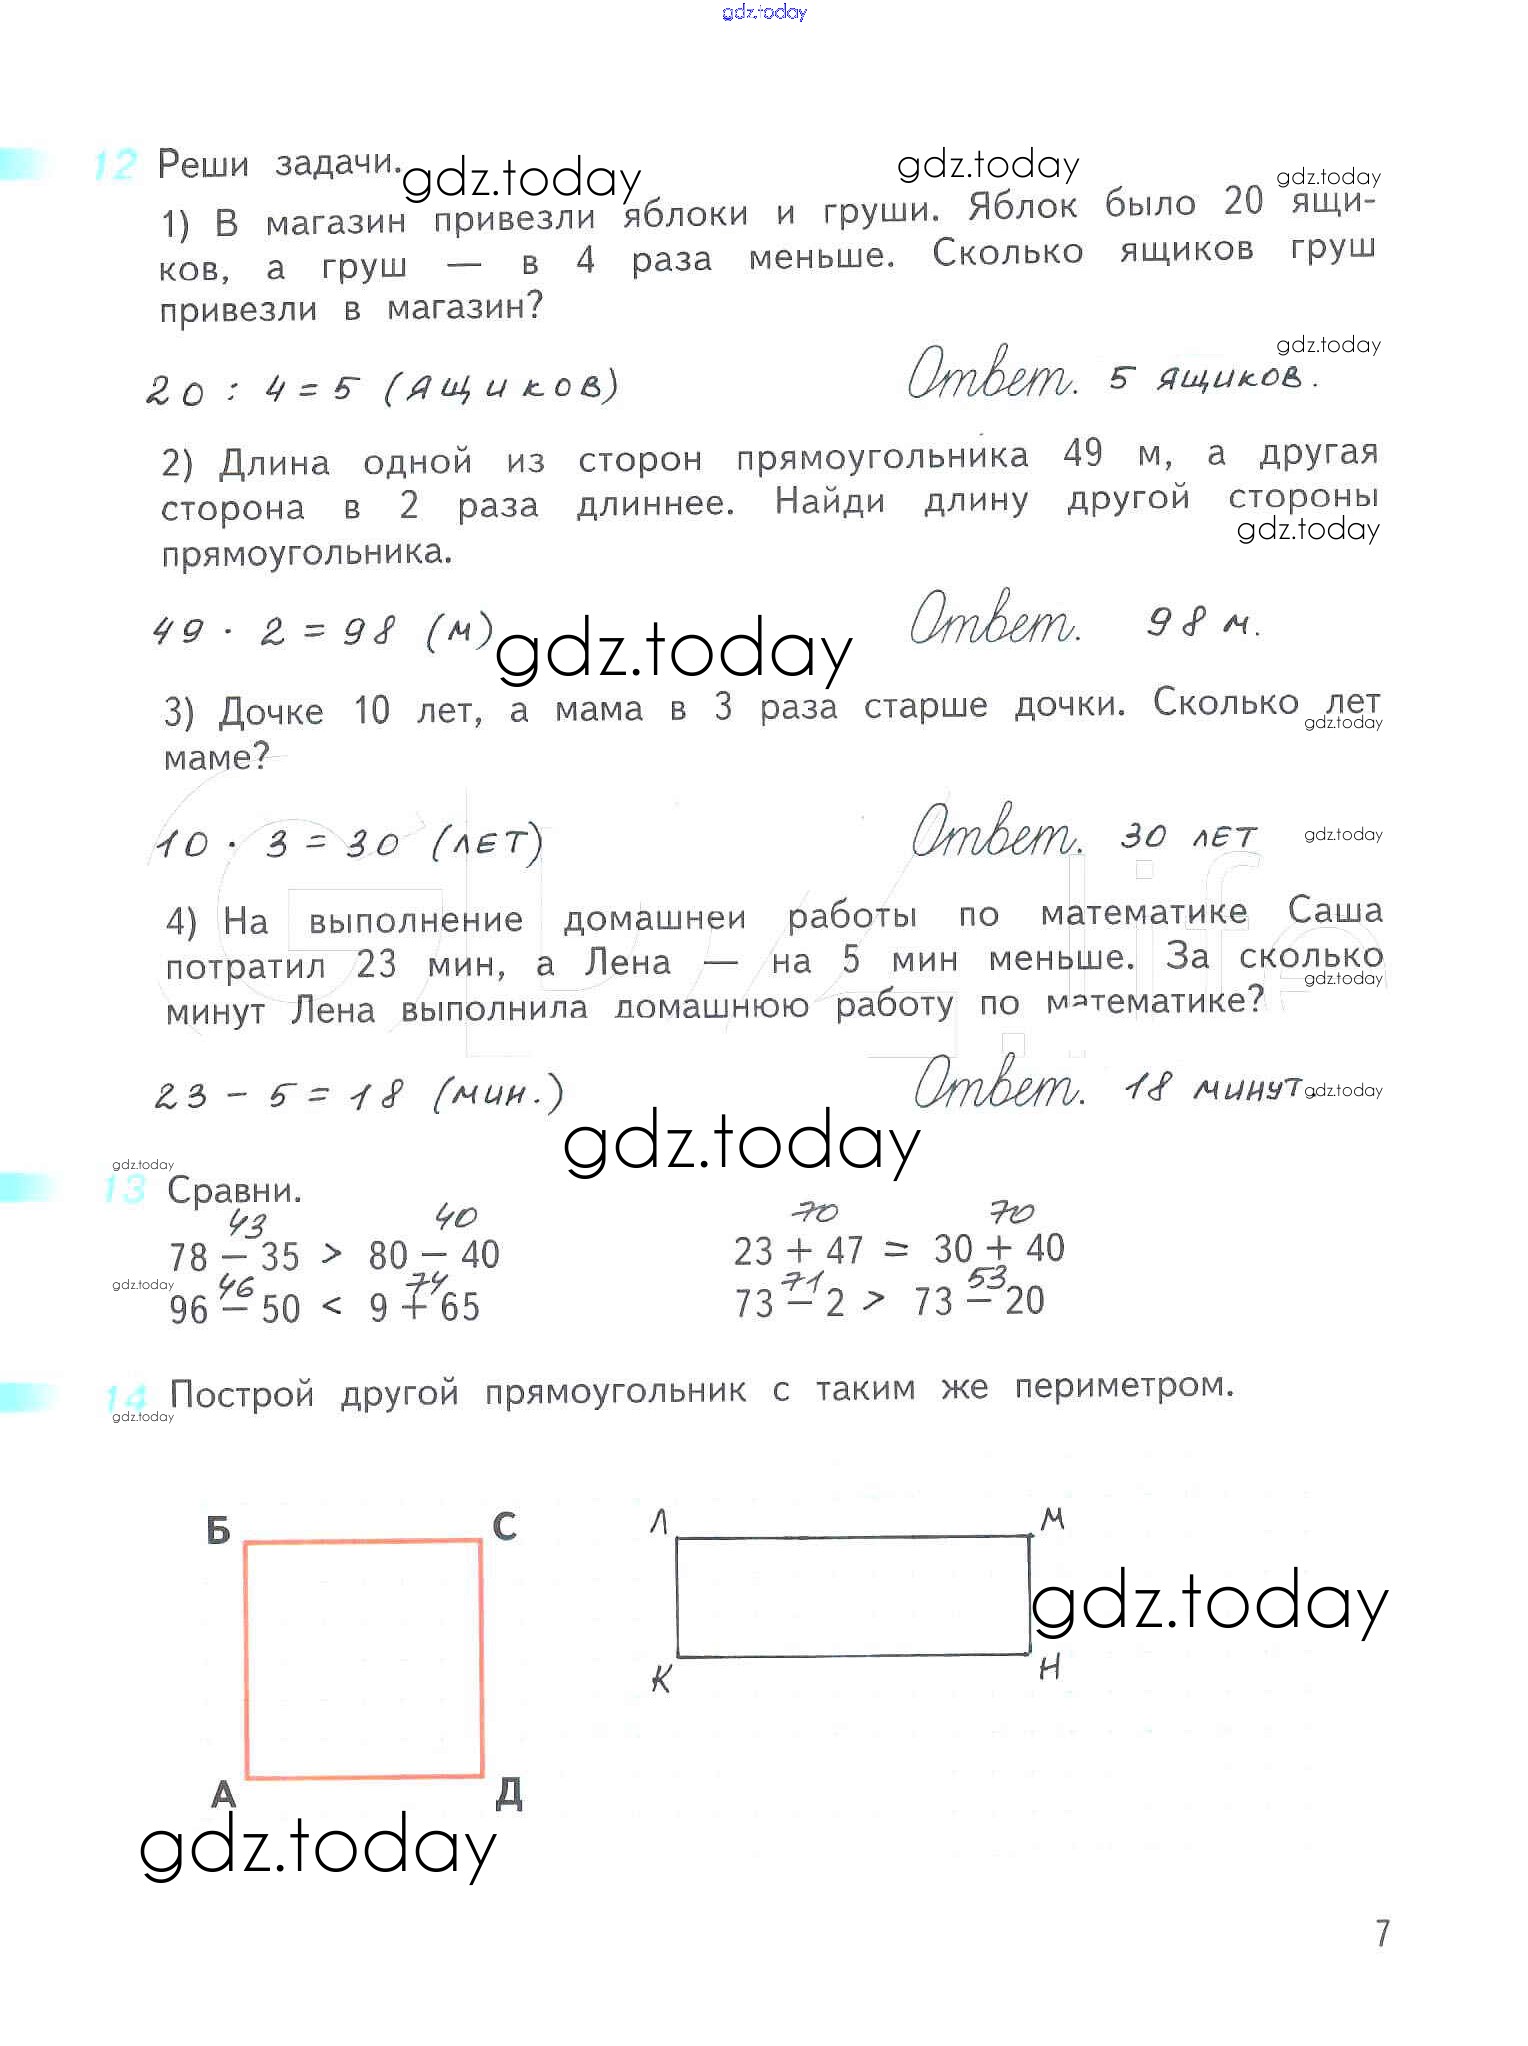 gdz.today
12 Реши задачи. gdz.today gdz.today gdz.today
1) В магазин привезли яблоки и груши. Яблок было 20 ящи-
ков, а груш — в 4 раза меньше. Сколько ящиков груш
привезли в магазин?
gdz.today
20 : 4 = 5 (ящиков) Ответ. 5 ящиков.
2) Длина одной из сторон прямоугольника 49 м, а другая
сторона в 2 раза длиннее. Найди длину другой стороны
прямоугольника. gdz.today
49 · 2 = 98 (м) gdz.today Ответ. 98 м.
3) Дочке 10 лет, а мама в 3 раза старше дочки. Сколько лет
маме? gdz.today
10 · 3 = 30 (лет) Ответ. 30 лет gdz.today
4) На выполнение домашней работы по математике Саша
потратил 23 мин, а Лена — на 5 мин меньше. За сколько
минут Лена выполнила домашнюю работу по математике? gdz.today
23 - 5 = 18 (мин.) Ответ. 18 минут gdz.today
gdz.today
gdz.today
13 Сравни.
43 40 70 70
78 − 35 > 80 − 40 23 + 47 = 30 + 40
gdz.today 46 74 71 53
96 − 50 < 9 + 65 73 − 2 > 73 − 20
14 Построй другой прямоугольник с таким же периметром.
gdz.today
Б С Л М
gdz.today
К Н
А Д
gdz.today
7